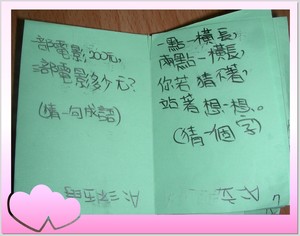 一部電影,200元,
三部電影多少元?
(猜一句成語)
一點一橫長,
兩點一橫長,
你若猜不著,
站著想一想。
(猜一個字)
A:立